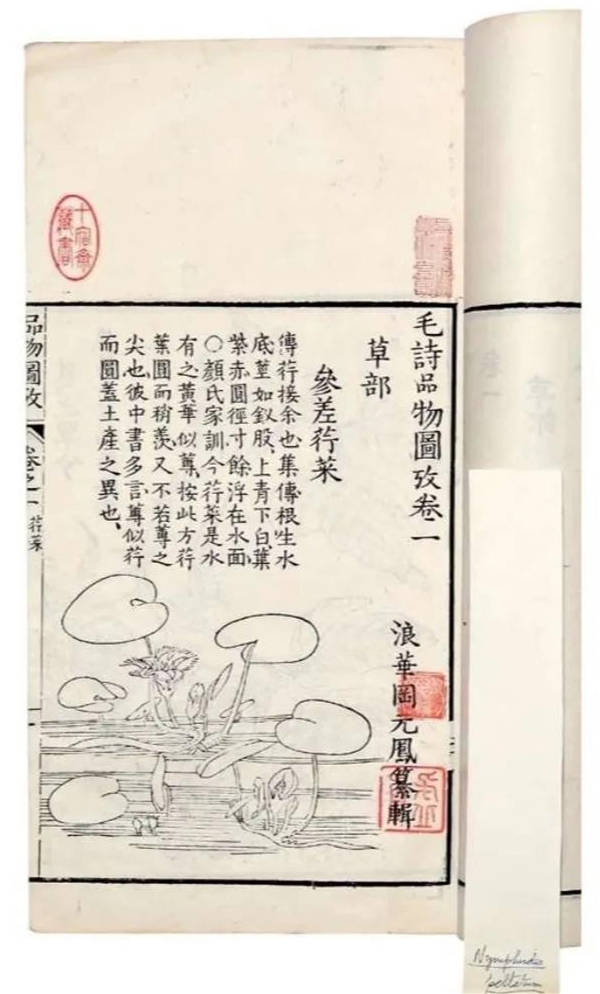 毛詩品物圖攷卷一
草部
浪華岡元鳳纂輯
參差荇菜
傳荇接余也集傳根生水
底莖如釵股、上青下白、葉
紫赤圓徑寸餘浮在水面
○顏氏家訓今荇菜是水
有之黃華似蓴、按此方荇
葉圓而稍羨、又不若蓴之
尖也、彼中書多言蓴似荇
而圓蓋土產之異也、
品物圖攷
卷之一
荇菜
Nymphoides
peltatum